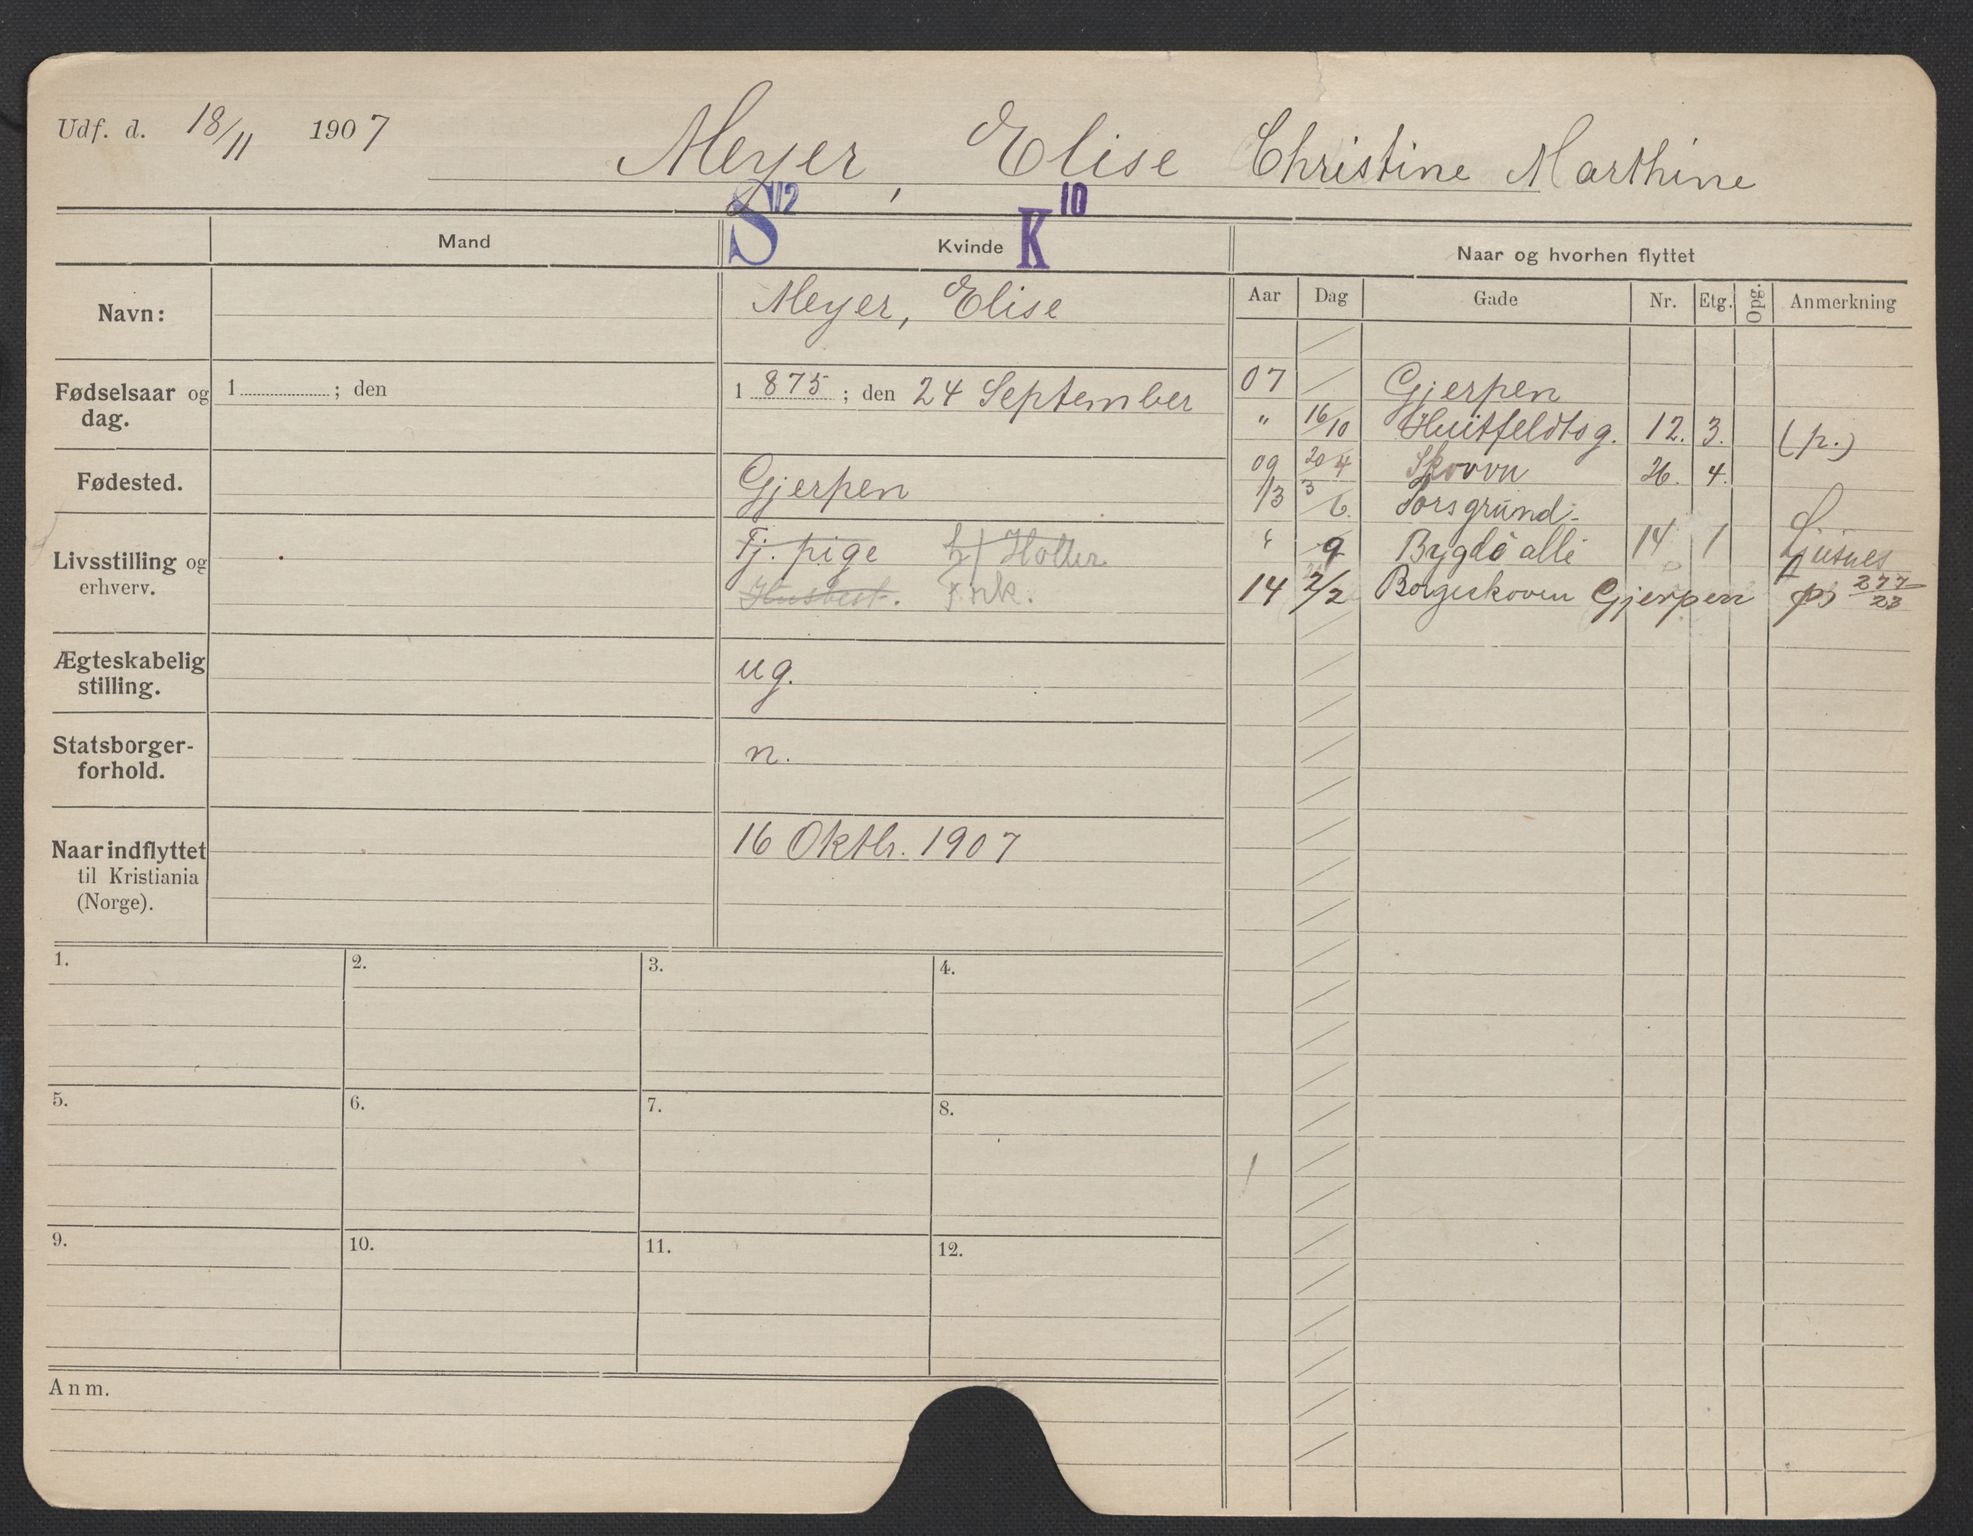 Udf. d. 18/11 1907 Meyer, Elise Christine Marthine
S 1/12 K 10
Mand Kvinde Naar og hvorhen flyttet
Aar Dag Gade Nr. Etg. Opg. Anmerkning
Navn: Meyer, Elise
Fødselsaar og dag. 1 ; den 1 875 ; den 24 September
Fødested. Gjerpen
Livsstilling og erhverv. Tj. pige h/ Holter
Husbest. Frk.
Ægteskabelig stilling. ug.
Statsborger-forhold. n.
Naar indflyttet til Kristiania (Norge). 16 Oktbr. 1907
07 Gjerpen
" 16/10 Huitfeldtsg. 12. 3. (p.)
09 20/4 Skovvn 26. 4.
13 3/6. Porsgrund.
" 9 Bygdø allé 14 1
14 2/2 Borgeskoven Gjerpen 277/23
1.
2.
3.
4.
5.
6.
7.
8.
9.
10.
11.
12.
Anm.